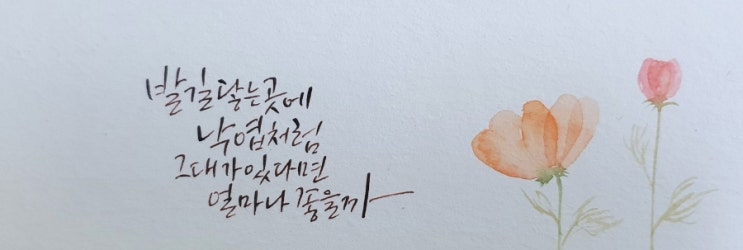 발길 닿는 곳에
낙엽처럼
그대가 있다면
얼마나 좋을까